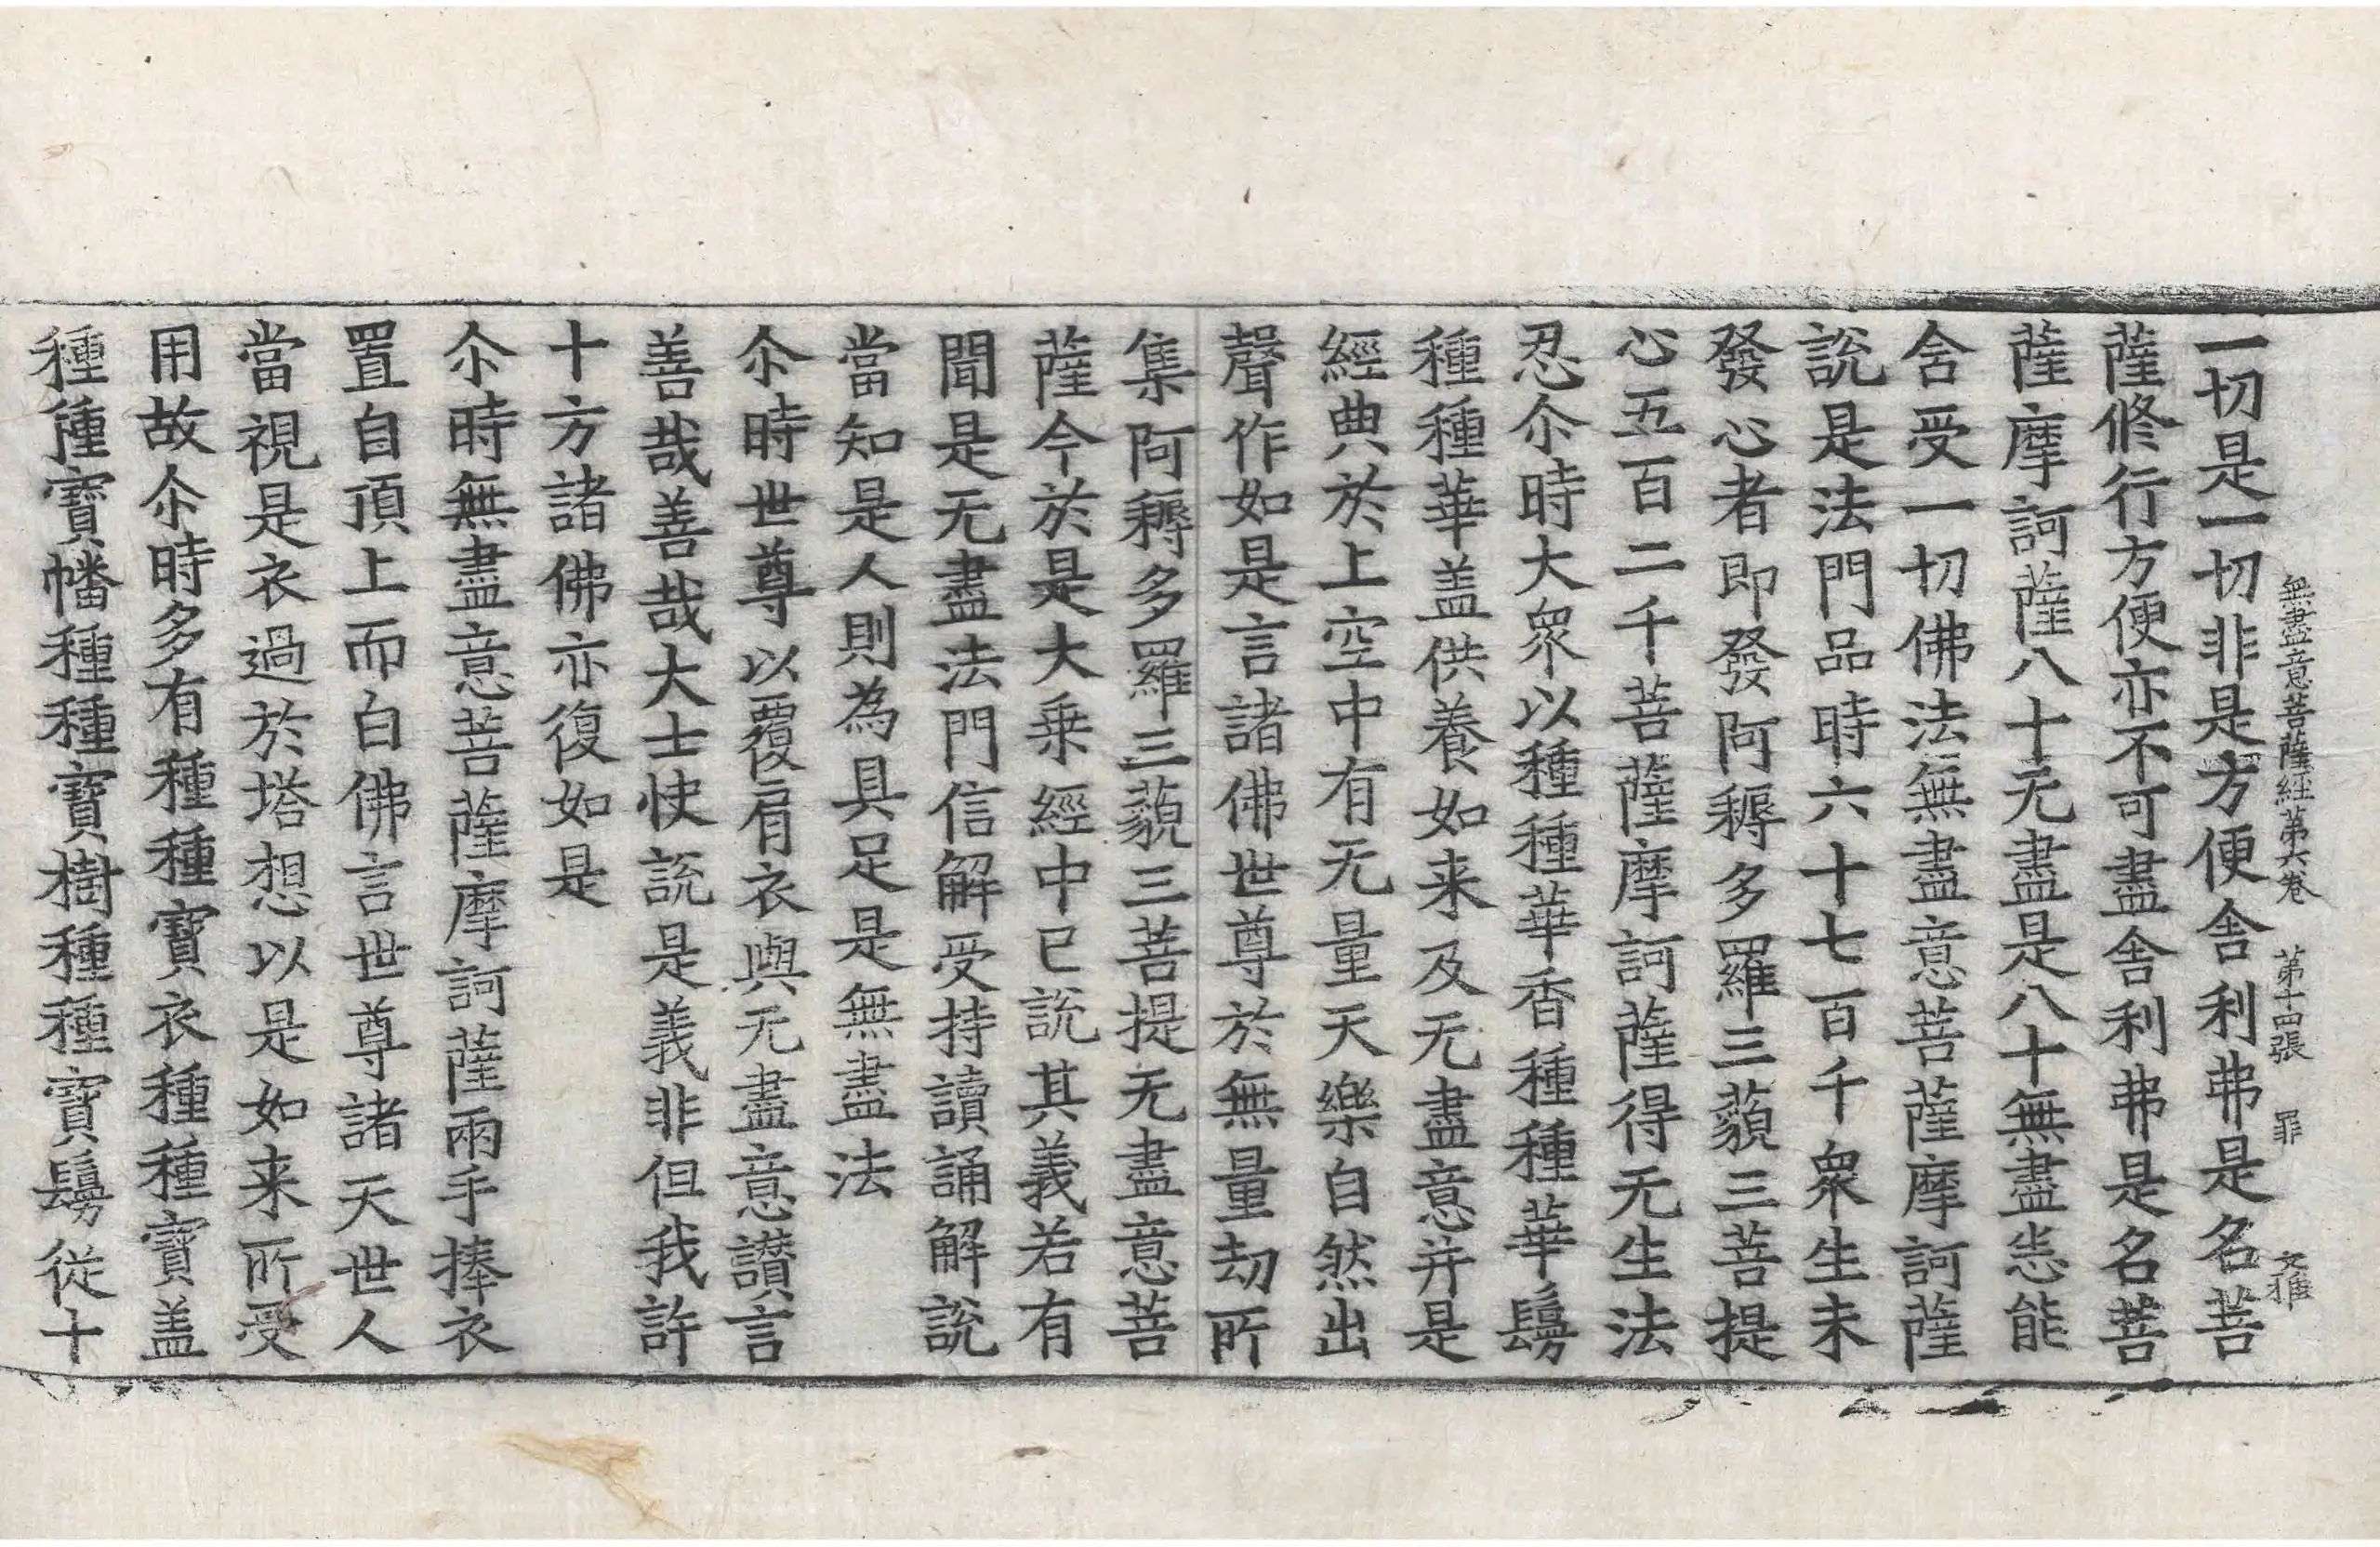 無盡意菩薩經第六卷 第十四張 罪 文推
一切是一切非是方便舍利弗是名菩
薩修行方便亦不可盡舍利弗是名菩
薩摩訶薩八十无盡是八十無盡悉能
含受一切佛法無盡意菩薩摩訶薩
說是法門品時六十七百千衆生未
發心者即發阿耨多羅三藐三菩提
心五百二千菩薩摩訶薩得无生法
忍尒時大衆以種種華香種種華鬘
種種華盖供養如来及无盡意并是
經典於上空中有无量天樂自然出
聲作如是言諸佛世尊於無量劫所
集阿耨多羅三藐三菩提无盡意菩
薩今於是大乗經中已說其義若有
聞是无盡法門信解受持讀誦解說
當知是人則為具足是無盡法
尒時世尊以覆肩衣與无盡意讃言
善哉善哉大士快說是義非但我許
十方諸佛亦復如是
尒時無盡意菩薩摩訶薩兩手捧衣
置自頂上而白佛言世尊諸天世人
當視是衣過於塔想以是如来所受
用故尒時多有種種寶衣種種寶盖
種種寶幡種種寶樹種種寶鬘從十